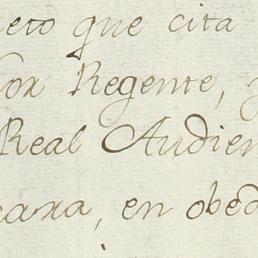 eto que cita
or Regente, y
Real Audien
cara, en obed